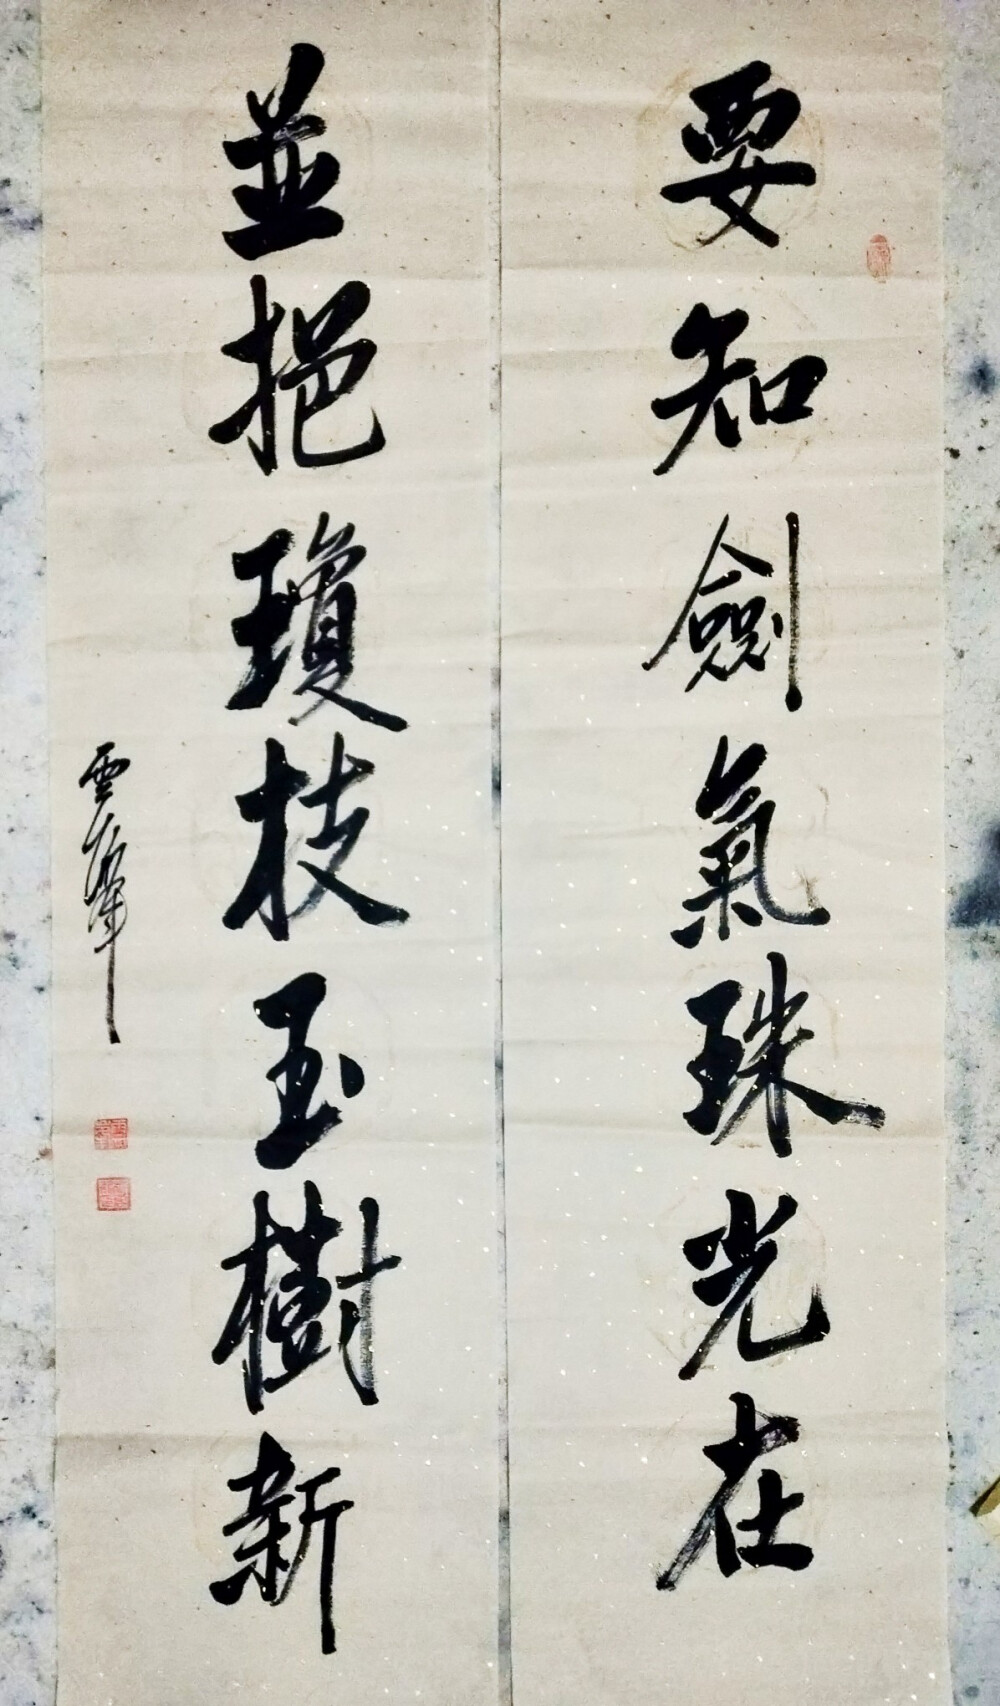 要知劍氣珠光在
並挹瓊枝玉樹新
雲峰